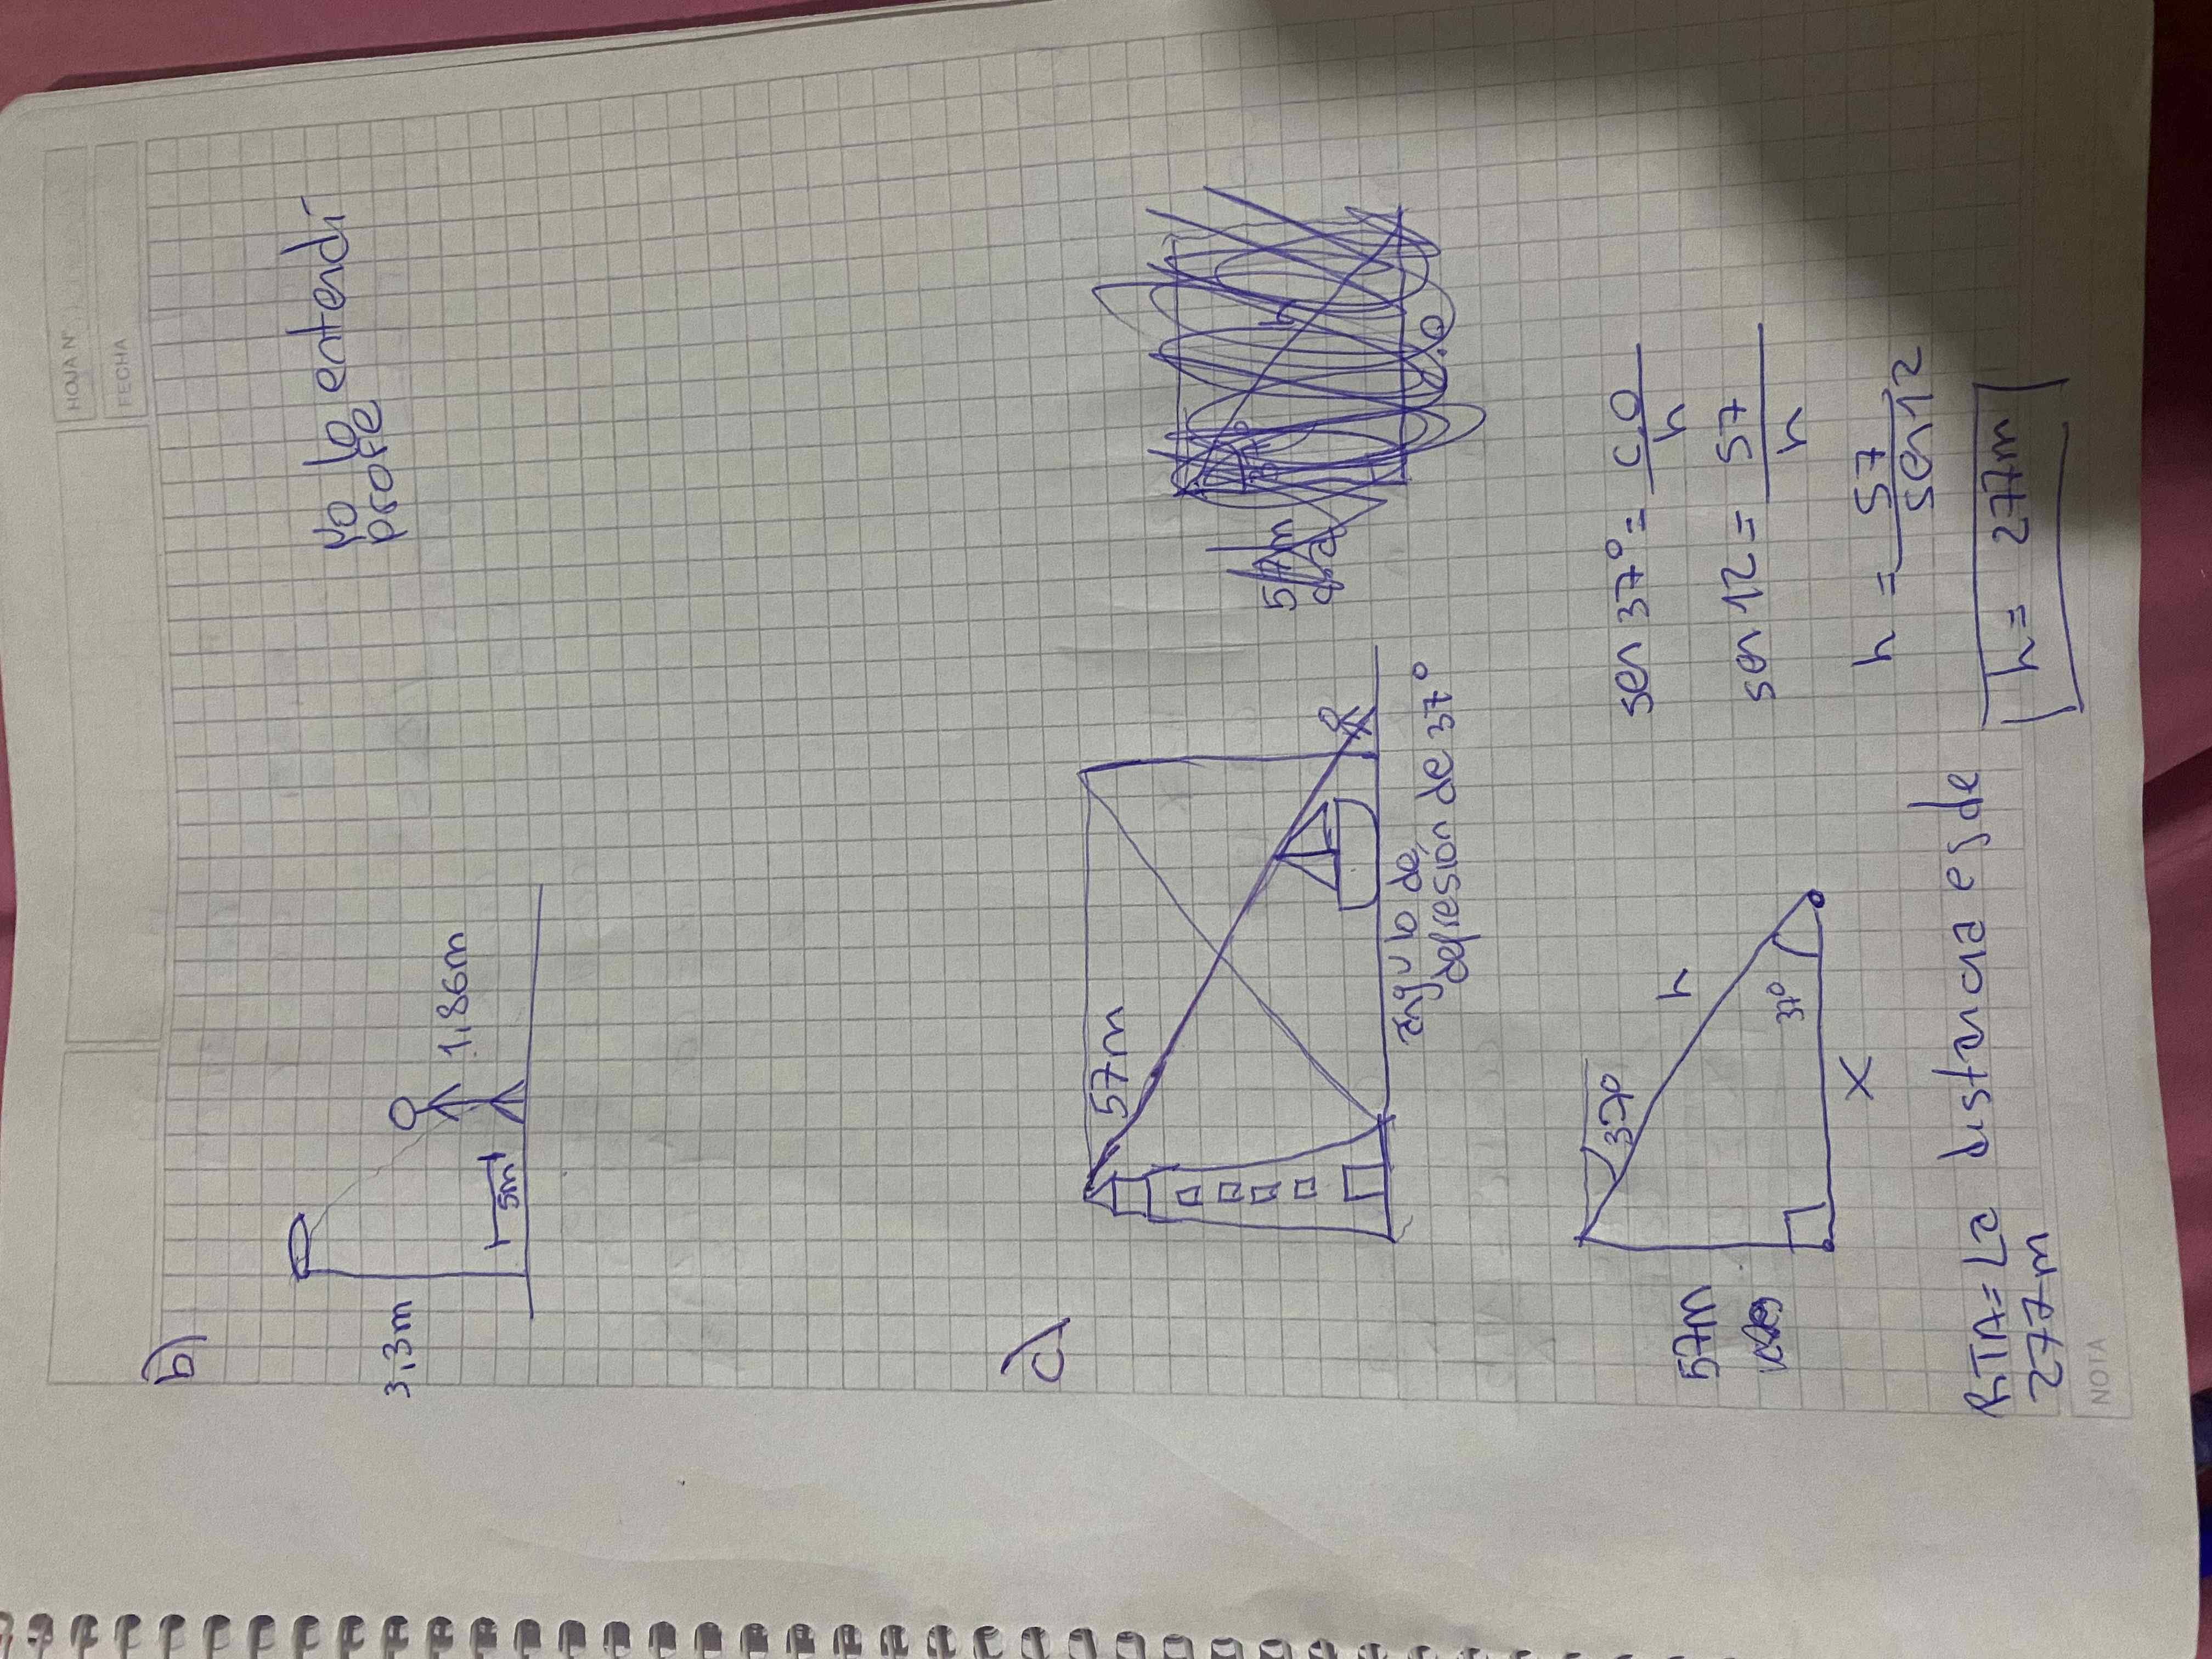 HOJA N°
FECHA
b)
No lo entendí
profe
3,3m
1.86m
5m
c)
57m
57m
angulo de
depresión de 37°
57m
37°
h
37°
x
sen 37° = C.O
h
sen 12 = 57
h
h = 57
sen 12
h = 277m
RTA= La distancia es de
277m
NOTA